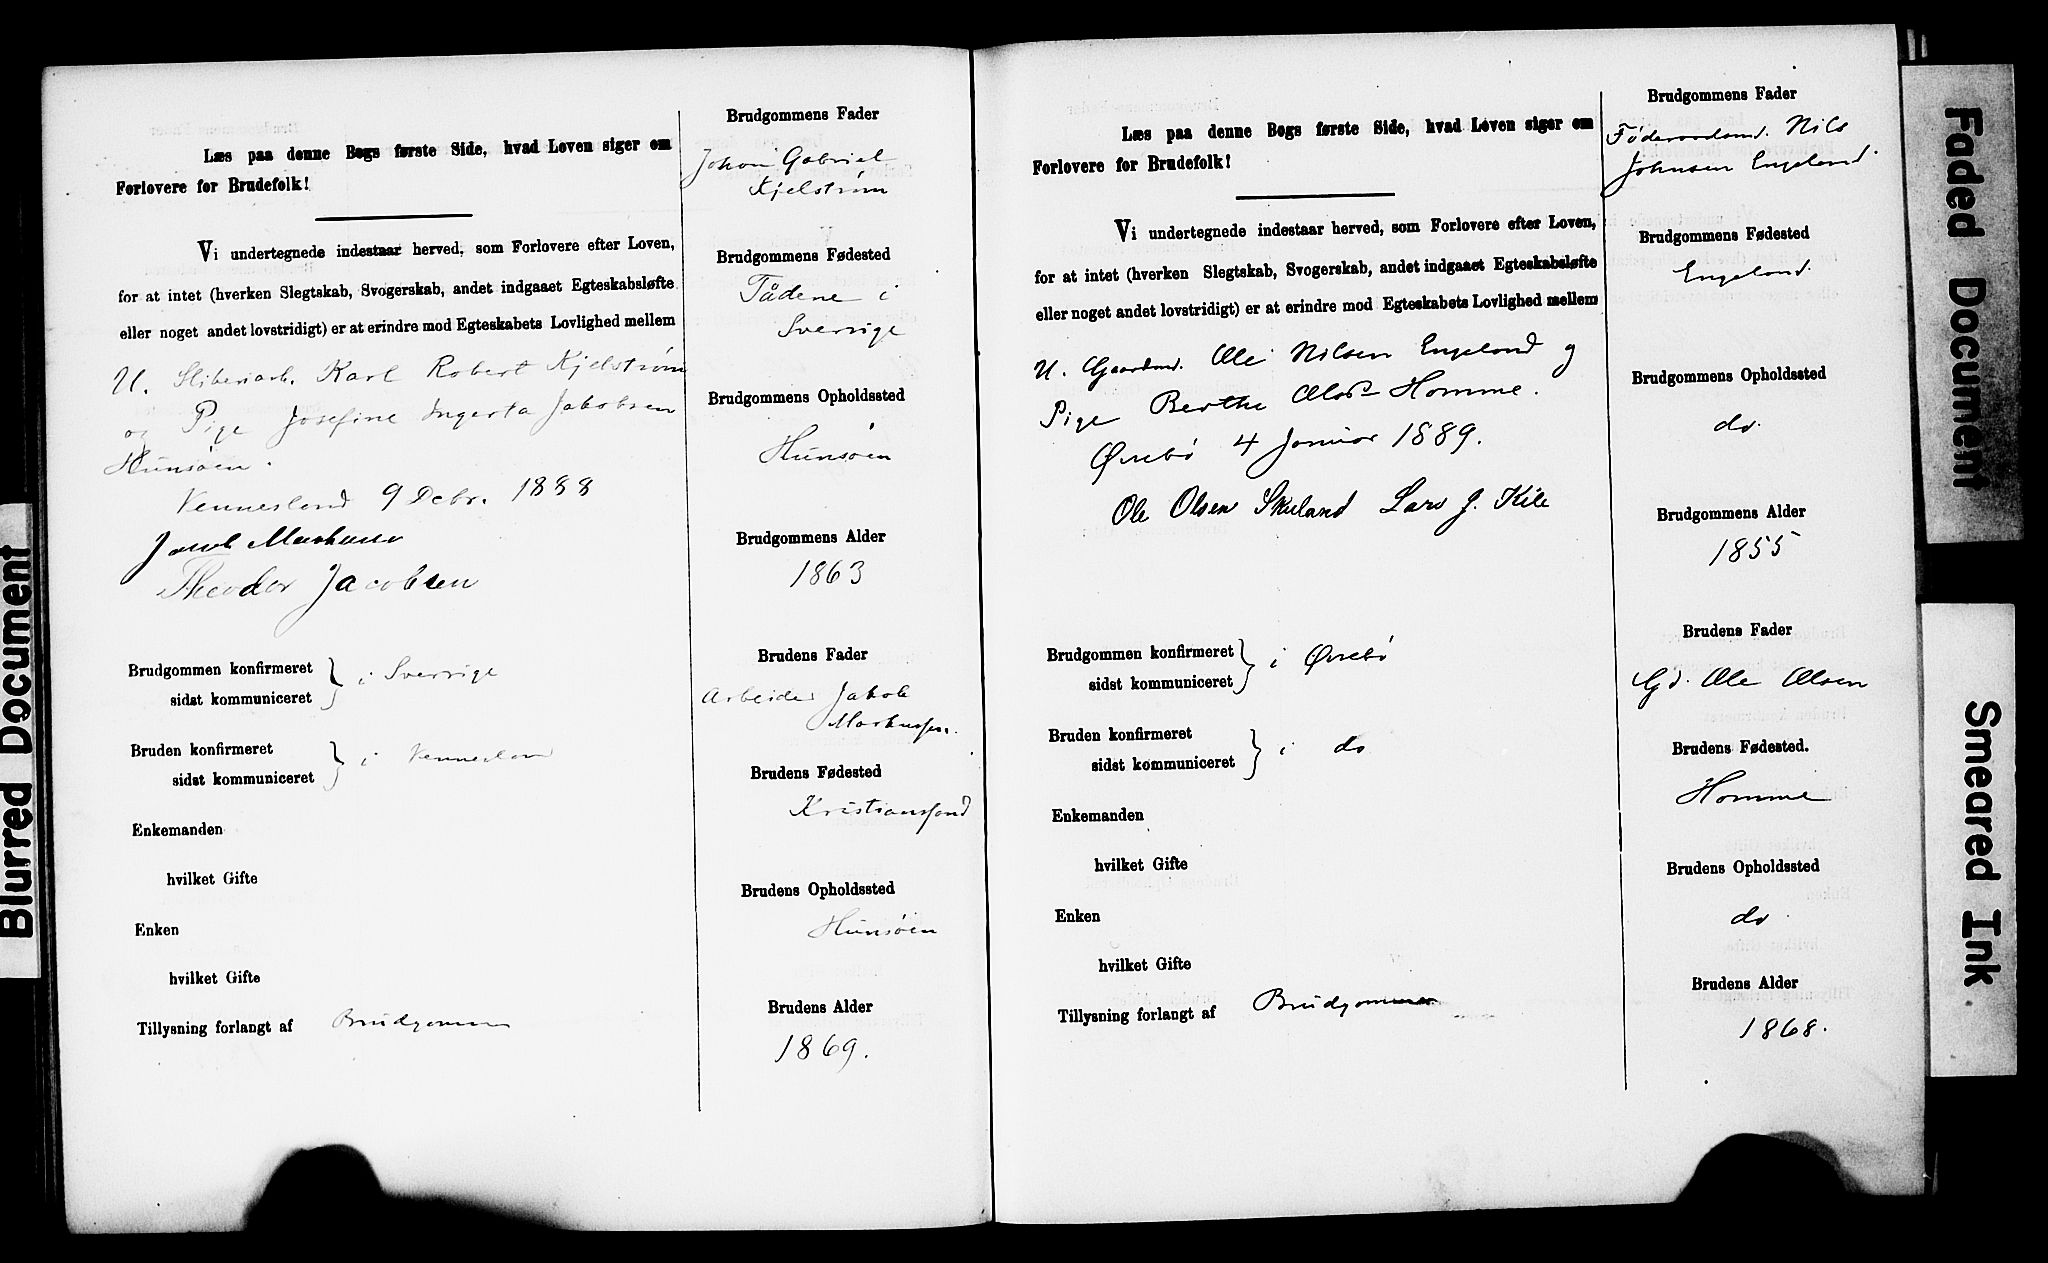 Læs paa denne Bogs første Side, hvad Loven siger om
Forlovere for Brudefolk!
Vi undertegnede indestaar herved, som Forlovere efter Loven,
for at intet (hverken Slegtskab, Svogerskab, andet indgaaet Egteskabsløfte
eller noget andet lovstridigt) er at erindre mod Egteskabets Lovlighed mellem
U. Sliberiarb. Karl Robert Kjelstrøm
og Pige Josefine Ingerta Jakobsen
Hunsøen.
Vennesland 9 Debr. 1888
Jacob Markusse
Theodor Jacobsen
Brudgommen konfirmeret
sidst kommuniceret
i Sverrige
Bruden konfirmeret
sidst kommuniceret
i Vennesland
Enkemanden
hvilket Gifte
Enken
hvilket Gifte
Tillysning forlangt af Brudgommen
Brudgommens Fader
Johan Gabriel
Kjelstrøm
Brudgommens Fødested
Tådene i
Sverrige
Brudgommens Opholdssted
Hunsøen
Brudgommens Alder
1863
Brudens Fader
Arbeider Jakob
Markussen.
Brudens Fødested
Kristianssand
Brudens Opholdssted
Hunsøen
Brudens Alder
1869.
Læs paa denne Bogs første Side, hvad Loven siger om
Forlovere for Brudefolk!
Vi undertegnede indestaar herved, som Forlovere efter Loven,
for at intet (hverken Slegtskab, Svogerskab, andet indgaaet Egteskabsløfte
eller noget andet lovstridigt) er at erindre mod Egteskabets Lovlighed mellem
U. Gaardmd. Ole Nilsen Engeland og
Pige Berthe Olsd. Homme.
Øvrebø 4 Januar 1889.
Ole Olsen Skuland Lars J. Kile
Brudgommen konfirmeret
sidst kommuniceret
i Øvrebø
Bruden konfirmeret
sidst kommuniceret
i do
Enkemanden
hvilket Gifte
Enken
hvilket Gifte
Tillysning forlangt af Brudgommen
Brudgommens Fader
Føderaadsmd. Nils
Johnsen Engeland.
Brudgommens Fødested
Engeland.
Brudgommens Opholdssted
do.
Brudgommens Alder
1855
Brudens Fader
Gd. Ole Olsen
Brudens Fødested.
Homme
Brudens Opholdssted
do
Brudens Alder
1868.
Blurred Document
Faded Document
Smeared Ink